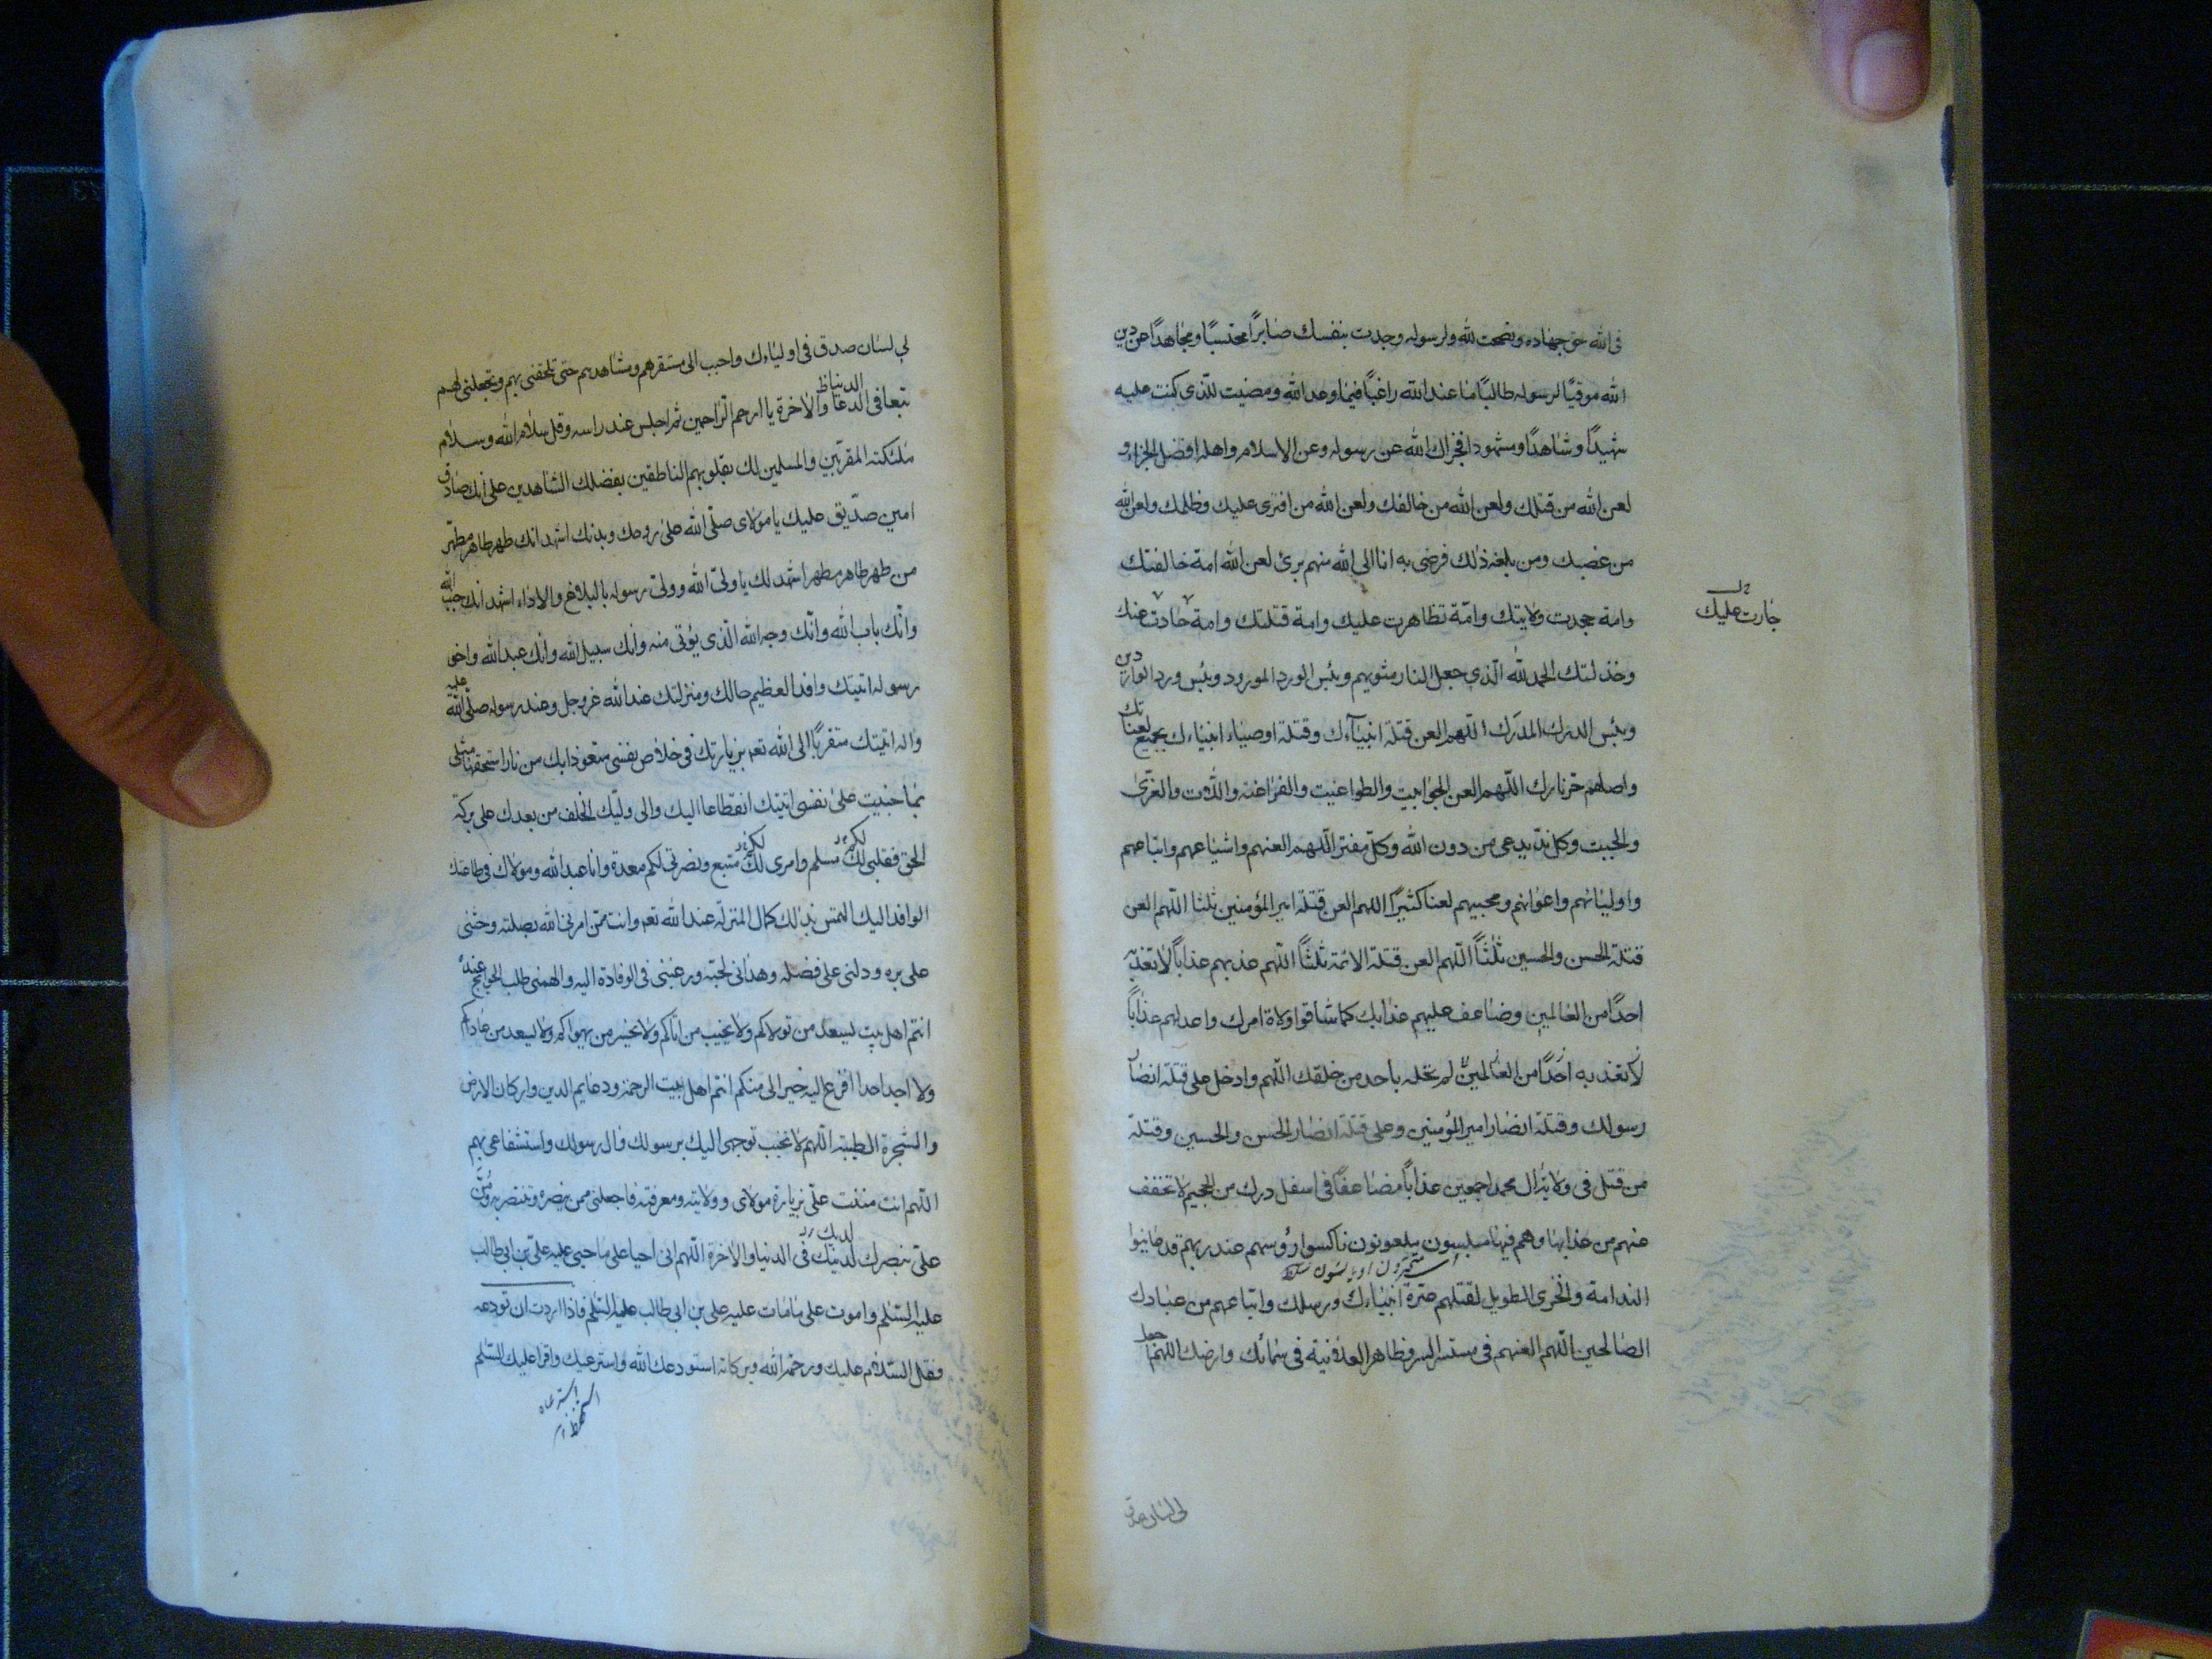 فى الله حق جهاده ونصحت لله ولرسوله وجدت بنفسك صابرًا محتسبًا ومجاهدًا عن دين
الله موقيًا لرسوله طالبًا ما عند الله راغبًا فيما وعد الله ومضيت للّذى كنت عليه
شهيدًا وشاهدًا ومشهودا فجزاك الله عن رسوله وعن الاسلام واهله افضل الجزاء و
لعن الله من قتلك ولعن الله من خالفك ولعن الله من افترى عليك وظلمك ولعن الله
من غصبك ومن بلغه ذلك فرضى به انا الى الله منهم برئ لعن الله امة خالفتك
وامة جحدت ولايتك وامّة تظاهرت عليك وامة قتلتك وامة حادت عنك
خارت عليك
وخذلتك الحمد لله الّذي جعل النار مثويهم وبئس الورد المورود وبئس ورد الواردين
وبئس الدرك المدرَك اللّهم العن قتلة انبيآءك وقتلة اوصياء انبياءك بجميع لعناتك
واصلهم حرّ نارك اللّهم العن الجوابيت والطواغيت والفراعنه واللّات والعزّى
والجبت وكل ندّ يدعى من دون الله وكلّ مفتر اللّهم العنهم واشياعهم واتباعهم
واوليائهم واعوانهم ومحبيهم لعنا كثيرًا اللهم العن قتلة امير المؤمنين ثلثا اللّهم العن
قتلة الحسن والحسين ثلثًا اللّهم العن قتلة الائمة ثلثًا اللّهم عذبهم عذابًا لا تعذبه
احدًا من العالمين وضاعف عليهم عذابك كما شاقوا ولاة امرك واعد لهم عذابًا
لا تعذب به احدًا من العالمين لم تحله باحد من خلقك اللّهم وادخل على قتلة انصار
رسولك وقتلة انصار امير المؤمنين وعلى قتلة انصار الحسن والحسين وقتلة
من قتل فى ولاية ال محمد اجمعين عذابًا مضاعفًا فى اسفل درك من الجحيم لا تخفف
عنهم من عذابها وهم فيها مبلسون ملعونون ناكسوا رؤسهم عند ربهم قد عاينوا
الندامة والخزى الطويل لقتلهم عترة انبياءك ورسلك واتباعهم من عبادك
الصالحين اللّهم العنهم فى مستسر السر وظاهر العلانية فى سمائك وارضك اللهم اجعل
لى لسان صدق
لي لسان صدق فى اولياءك واحبب الى مستقرهم ومشاهدهم حتى تلحقنى بهم وتجعلنى لهم
الدنيا ظ
تبعا فى الدعا والاخرة يا ارحم الرّاحمين ثم اجلس عند راسه وقل سلام الله وسلام
ملئكته المقرّبين والمسلمين لك بقلوبهم الناطقين بفضلك الشاهدين على انك صادق
امين صدّيق عليك يا مولاى صلّى الله على روحك وبدنك اشهد انك طهر طاهر مطهّر
من طهر طاهر مطهر اشهد لك يا ولىّ الله وولىّ رسوله بالبلاغ والاداء اشهد انك جنب الله
وانّك باب الله وانّك وجه الله الّذى يؤتى منه وانك سبيل الله وانّك عبد الله واخو
رسوله اتيتك وافدا لعظيم حالك ومنزلتك عند الله عز وجل وعند رسوله صلّى الله عليه
واله اتيتك متقربًا الى الله تعم بزيارتك فى خلاص نفسى متعوذا بك من نار استحقها مثلى
بما جنيت على نفسى اتيتك انقطاعا اليك والى وليّك الخلف من بعدك على بركة
لكم لكم
الحق فقلبى لك مسلم وامرى لك متبع ونصرتى لكم معدة وانا عبد الله ومولاك فى طاعتك
الوافد اليك التمس بذلك كمال المنزلة عند الله تعم وانت ممّن امرنى الله بصلته وحثنى
على بره ودلنى على فضله وهدانى لحبّه ورغبنى فى الوفادة اليه والهمنى طلب الحوائج عنده
انتم اهل بيت يسعد من تولاكم ولا يخيب من اتاكم ولا يخسر من يهواكم ولا يسعد من عاداكم
ولا اجد احدا افزع اليه خيرا لى منكم انتم اهل بيت الرحمة ودعايم الدين واركان الارض
والشجرة الطيبة اللّهم لا تخيب توجهى اليك برسولك وال رسولك واستشفاعى بهم
اللّهم انت مننت علىّ بزيارة مولاى وولايته ومعرفته فاجعلنى ممن ينصره وتنتصر به ومُنَّ
لدينك
علىّ بنصرك لدينك فى الدنيا والاخرة اللّهم انى احيا على ما حيى عليه علىّ بن ابى طالب
عليه السّلم واموت على مامات عليه على بن ابى طالب عليه السّلم فاذا اردت ان تودعه
فقل السّلام عليك ورحمة الله وبركاته استودعك الله واسترعيك واقرا عليك السّلم